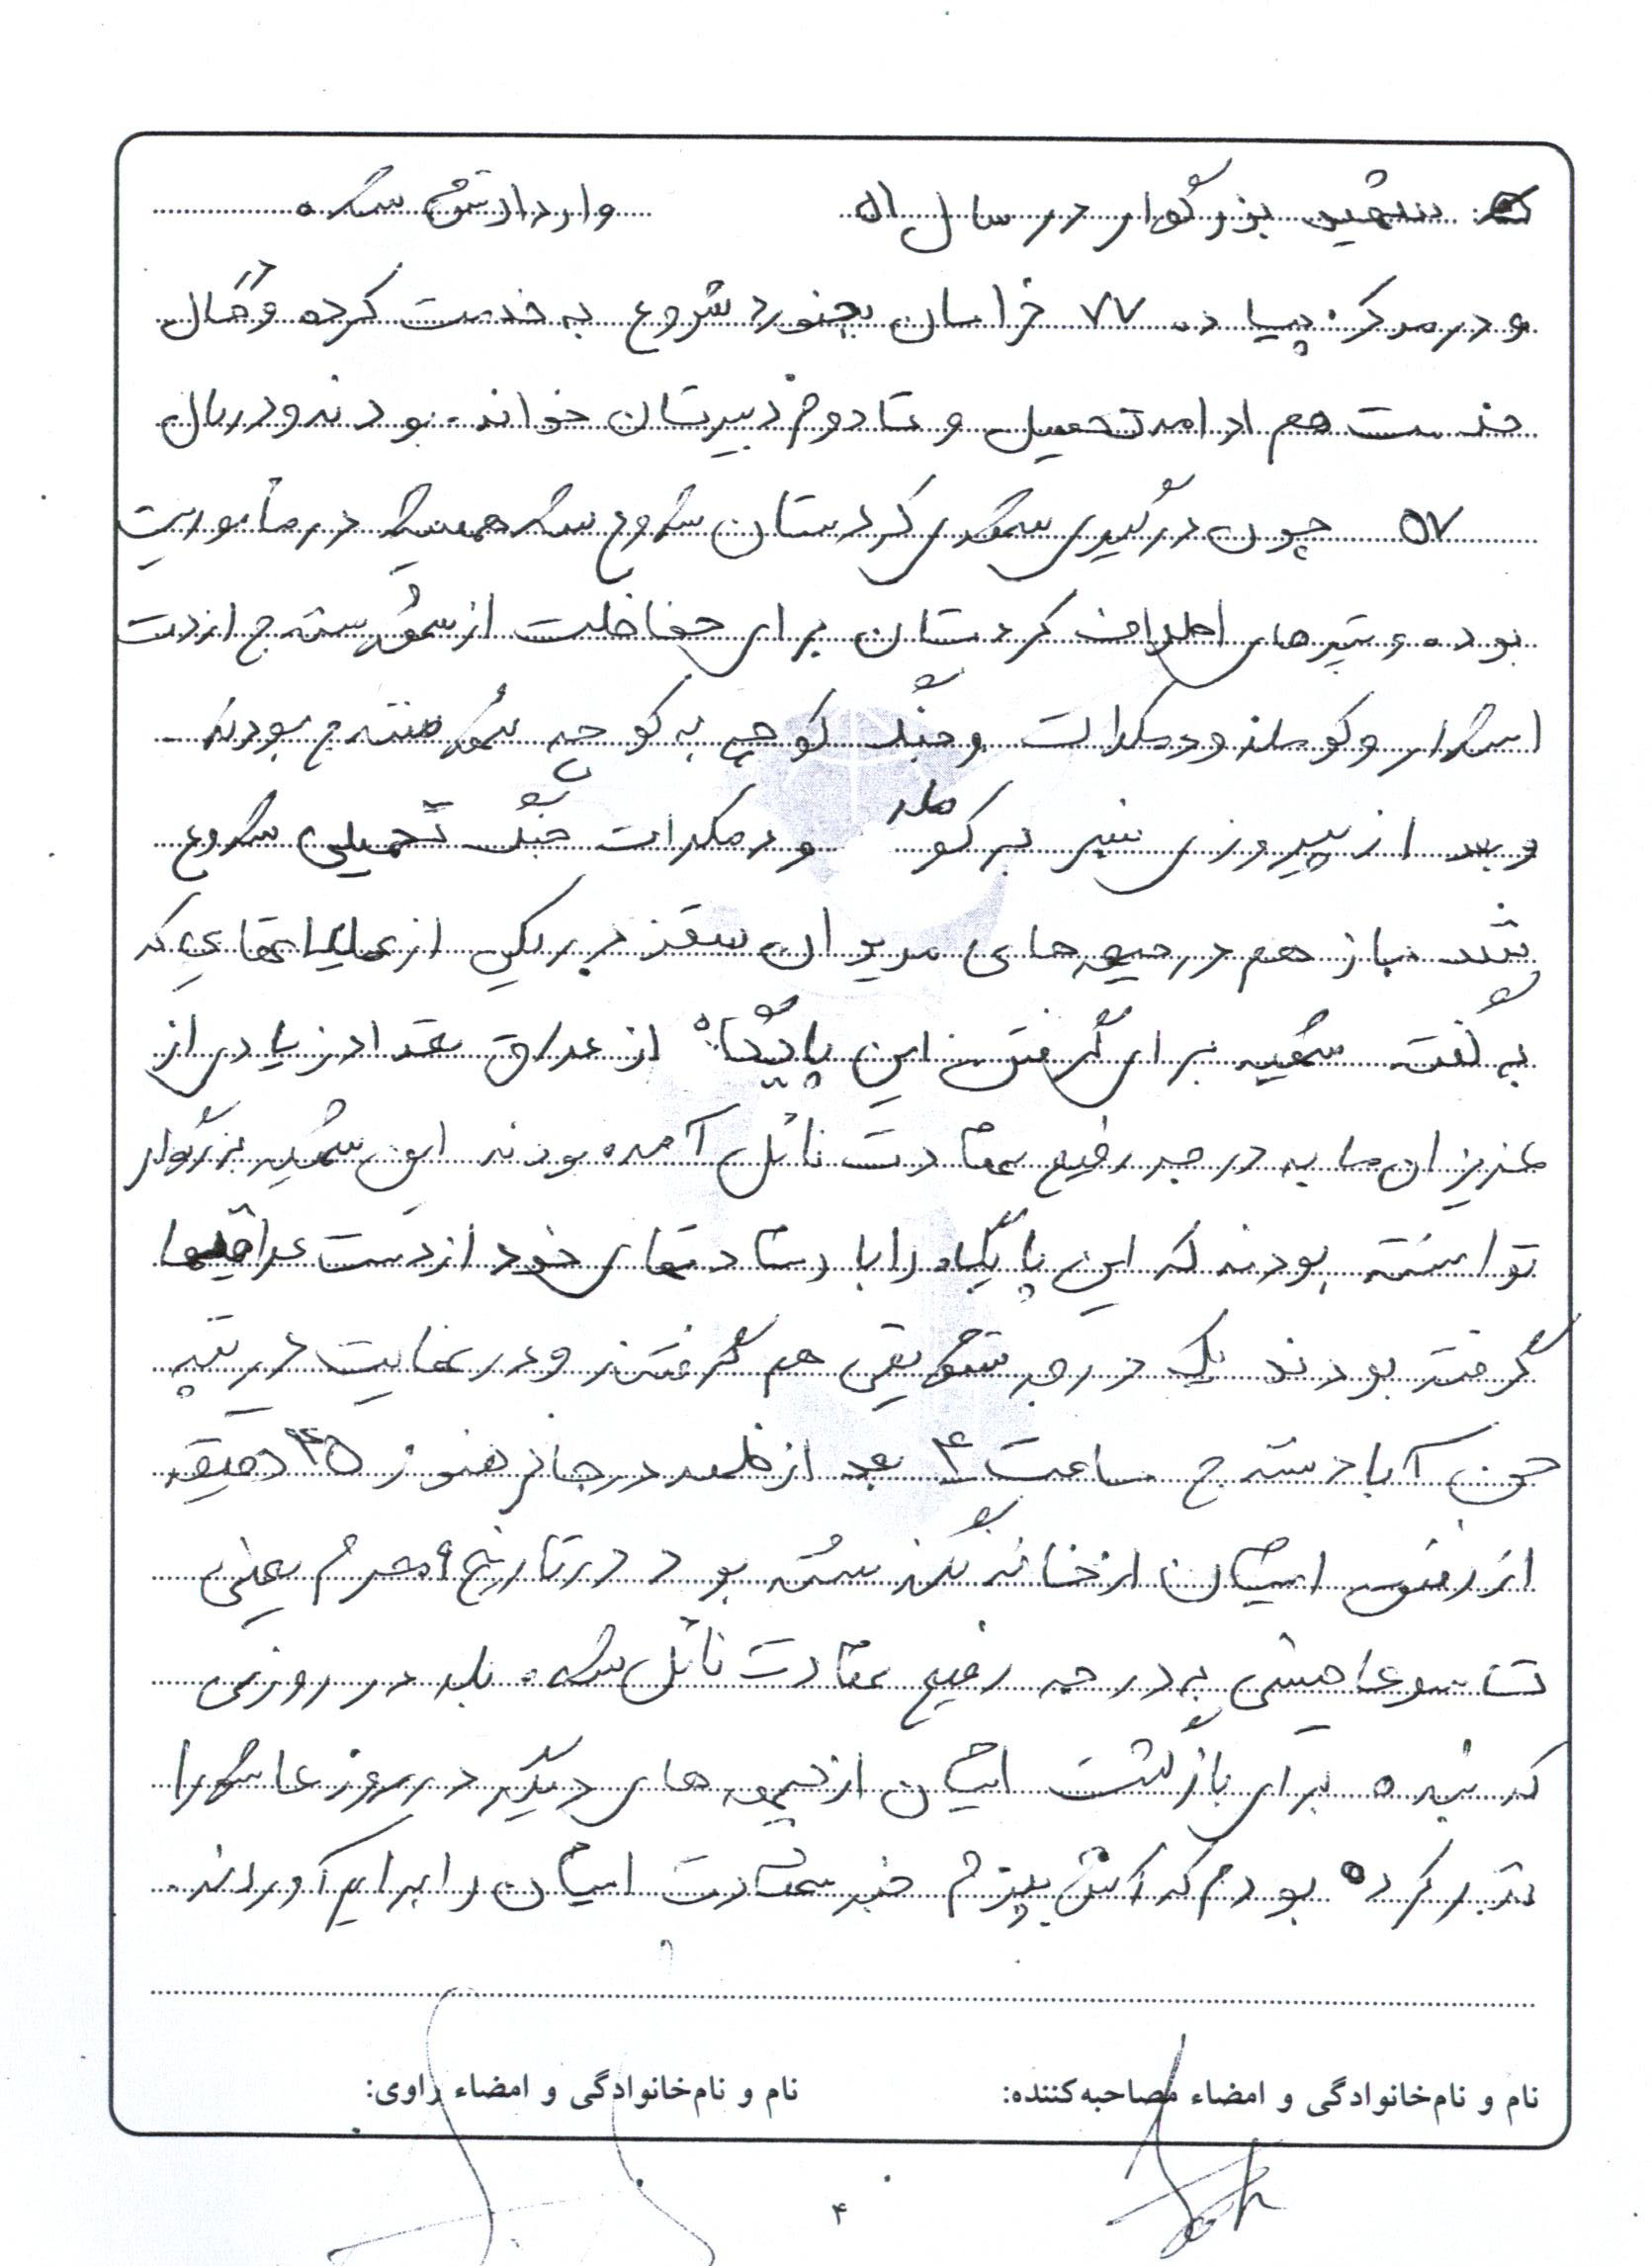 شهید بزرگوار در سال ۵۱ وارد ارتش شده
و در مرکز پیاده ۷۷ خراسان بجنورد شروع به خدمت کرده و در حال
خدمت هم ادامه تحصیل و تا دوم دبیرستان خوانده بودند و در سال
۵۷ چون درگیری شهرهای کردستان شروع شد همیشه در مأموریت
بوده و تپه‌های اطراف کردستان برای حفاظت از شهر سنندج از دست
اشرار و کومله و دمکرات و جنگ کوچه به کوچه شهر سنندج بودند
و بعد از پیروزی نیز بر کومله و دمکرات جنگ تحمیلی شروع
شد باز هم در جبهه‌های مریوان سقز در یکی از عملیاتهایی که
به گفته شهید برای گرفتن این پایگاه از عراق تعداد زیادی از
عزیزان ما به درجه رفیع شهادت نائل آمده بودند این شهید بزرگوار
توانسته بودند که این پایگاه را با رشادتهای خود از دست عراقیها
گرفته بودند یک درجه تشویقی هم گرفتند و در نهایت در تپه
حسن آباد سنندج ساعت ۴ بعد از ظهر در جائی هنوز ۴۵ دقیقه
از رفتن ایشان از خانه نگذشته بود در تاریخ ۹ محرم یعنی
تاسوعا حسینی به درجه رفیع شهادت نائل شد. بله در روزی
که بنده برای بازگشت ایشان از جبهه‌های دیگر در روز عاشورا
نذر کرده بودم که آش بپزم خبر شهادت ایشان را برایم آوردند.
نام و نام‌خانوادگی و امضاء مصاحبه‌کننده: نام و نام‌خانوادگی و امضاء راوی:
۴